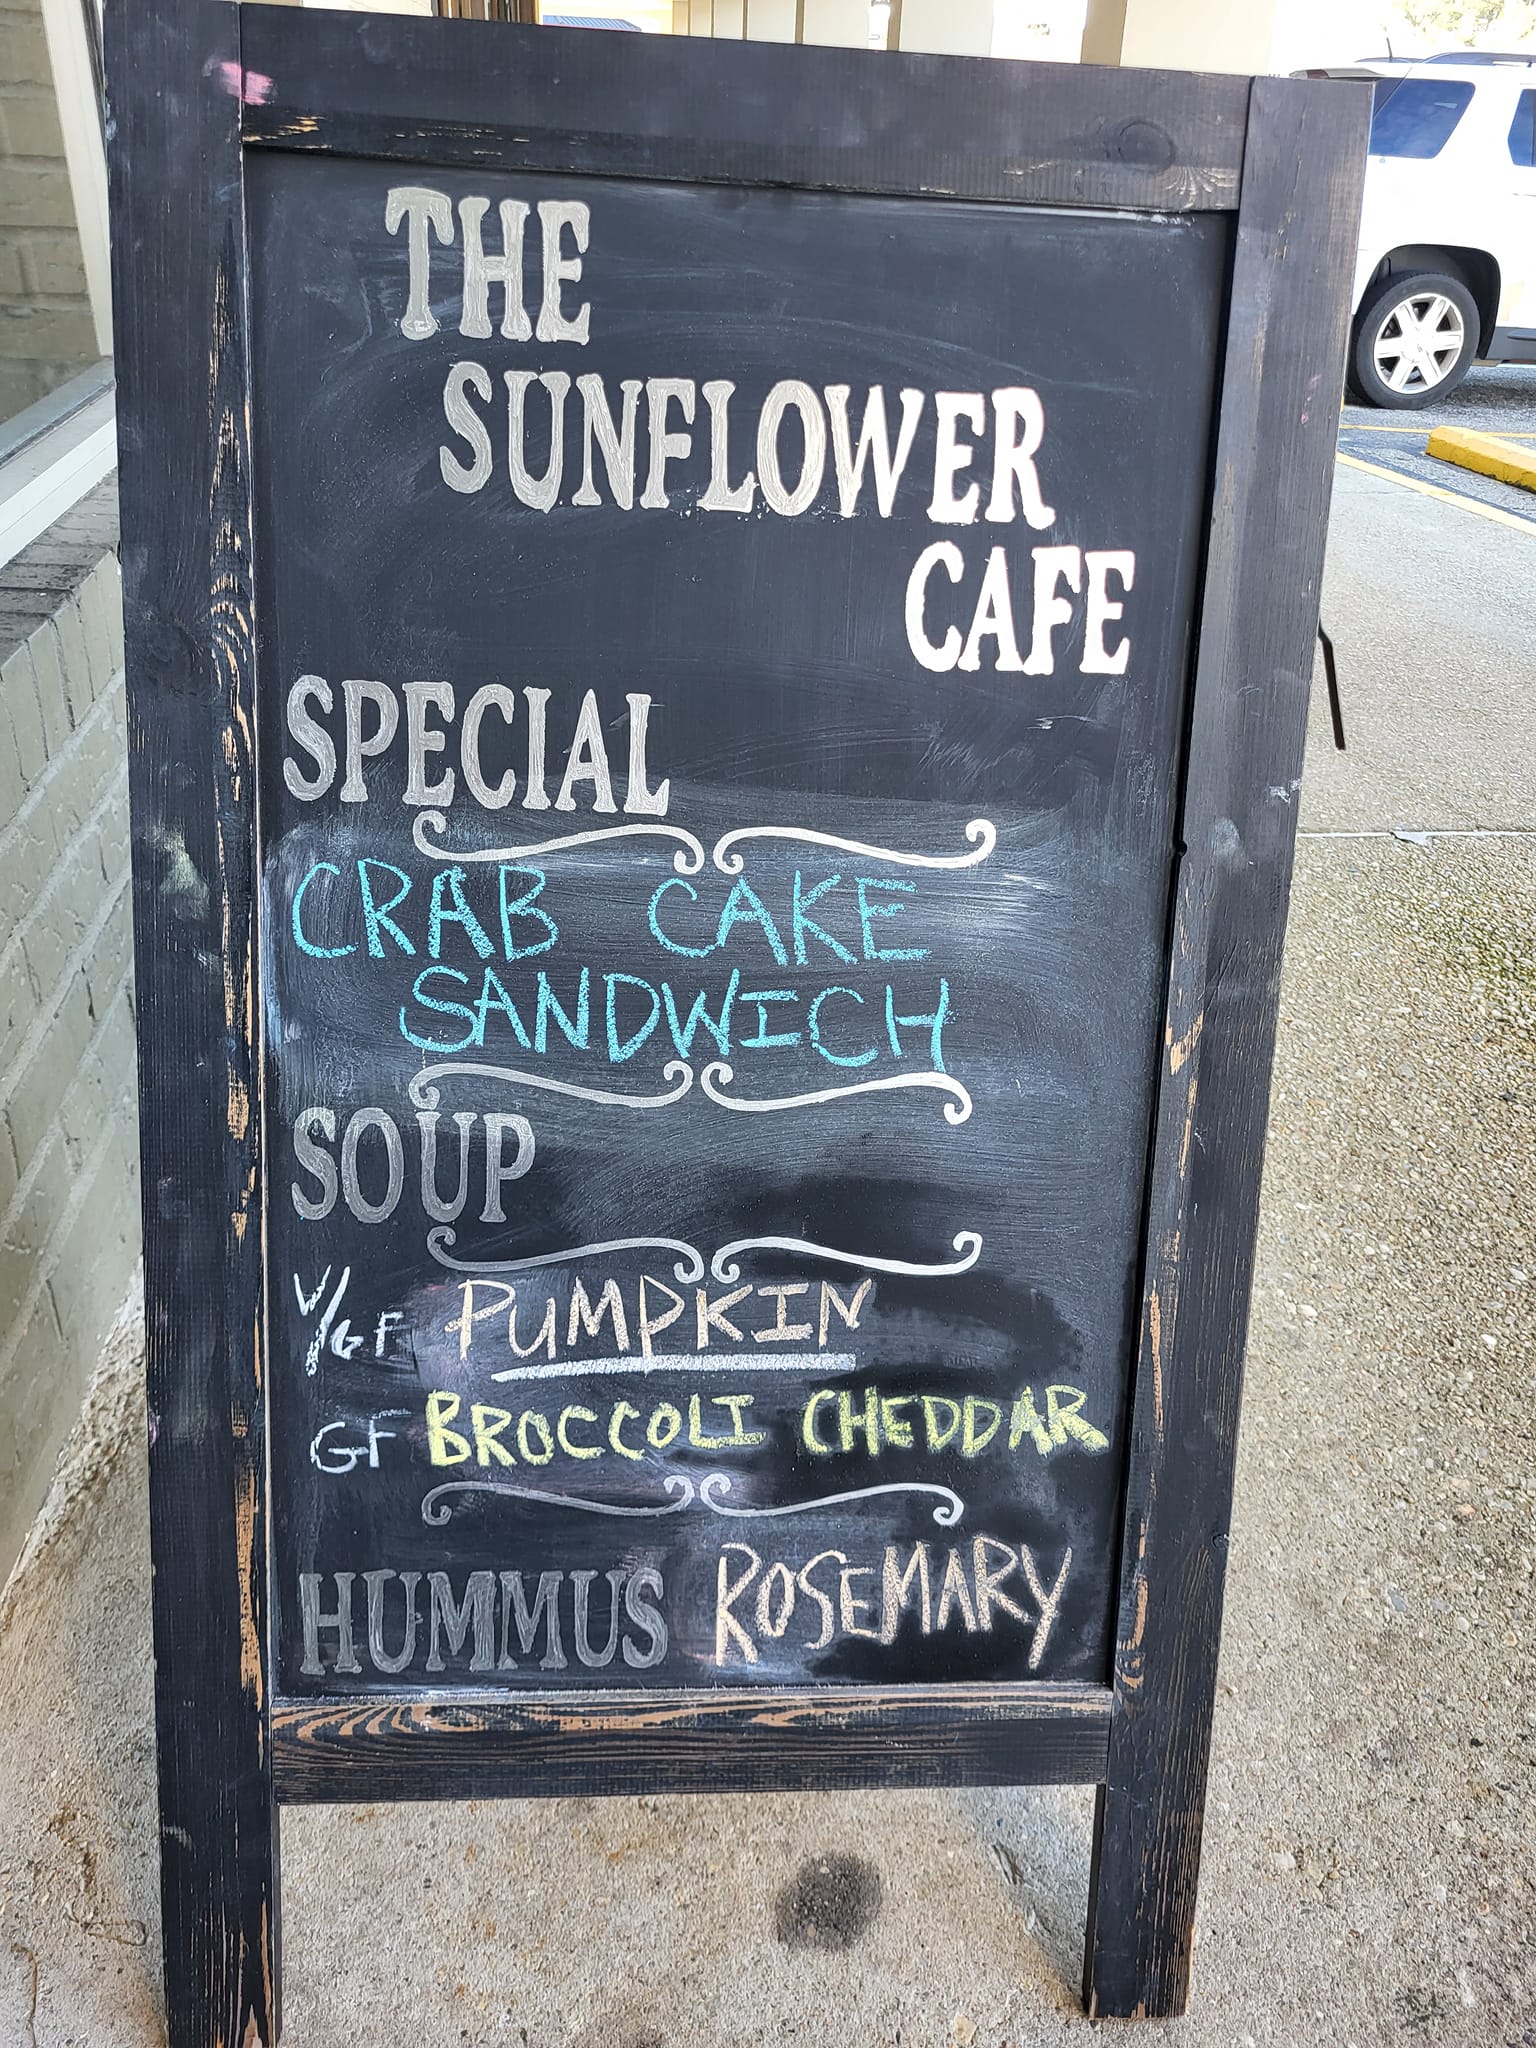 THE
SUNFLOWER
CAFE
SPECIAL
CRAB CAKE
SANDWICH
SOUP
V/GF PUMPKIN
GF BROCCOLI CHEDDAR
HUMMUS ROSEMARY